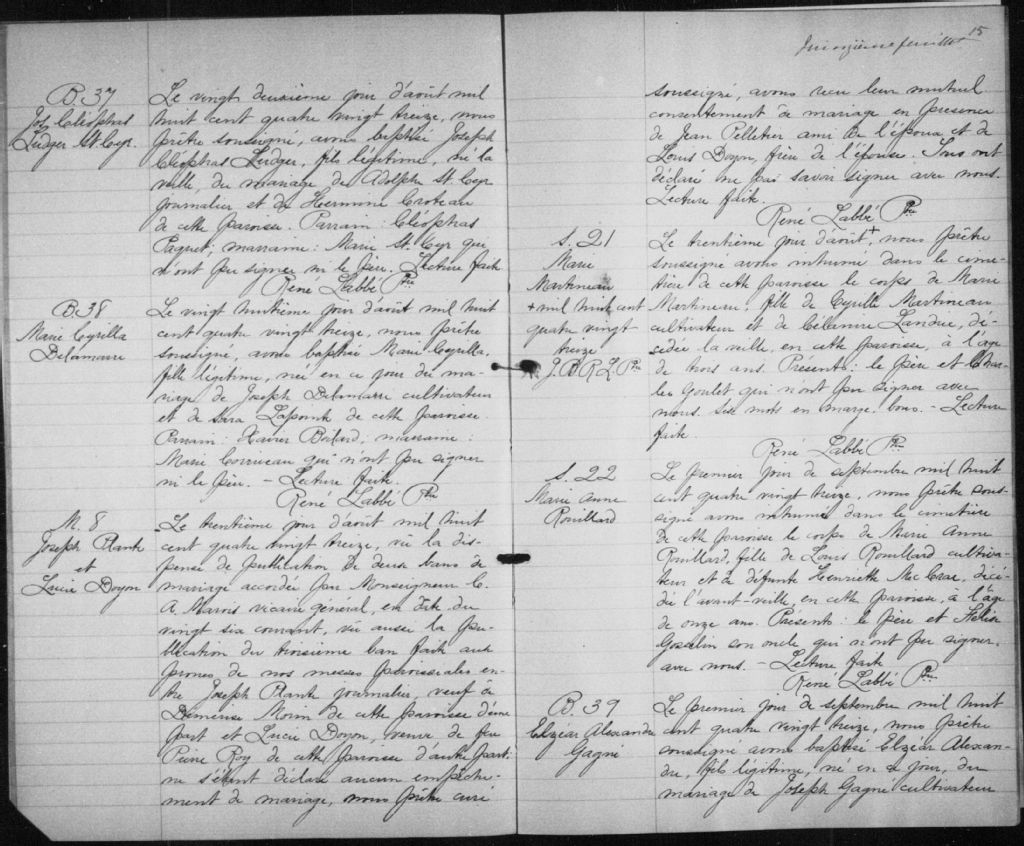 B. 37
Jos Cléophas
Ludger St. Cyr.
Le vingt deuxième jour d'août mil
huit cent quatre vingt treize, nous
prêtre soussigné, avons baptisé Joseph
Cléophas Ludger, fils légitime, né la
veille, du mariage de Adolphe St. Cyr
journalier et de Hermine Croteau
de cette paroisse. Parrain: Cléophas
Paquet; marraine: Marie St. Cyr qui
n'ont pu signer ni le père. Lecture faite
René Labbé Ptre
B. 38
Marie Cyrilla
Delamarre
Le vingt huitième jour d'août mil huit
cent quatre vingt treize, nous prêtre
soussigné, avons baptisé Marie Cyrilla,
fille légitime, née en ce jour du ma-
riage de Joseph Delamarre cultivateur
et de Sara Lapointe de cette paroisse.
Parrain: Xavier Boilard; marraine:
Marie Corriveau qui n'ont pu signer
ni le père. - Lecture faite.
René Labbé Ptre
M. 8
Joseph Plante
et
Lucie Doyon
Le trentième jour d'août mil huit
cent quatre vingt treize, vu la dis-
pense de publication de deux bans de
mariage accordée par Monseigneur C.
A. Marois vicaire général, en date du
vingt six courant, vu aussi la pu-
blication du troisième ban faite aux
prônes de nos messes paroissiales en-
tre Joseph Plante journalier, veuf de
Démérise Morin de cette paroisse d'une
part et Lucie Doyon, veuve de feu
Pierre Roy de cette paroisse d'autre part;
ne s'étant déclaré aucun empêche-
ment de mariage, nous prêtre curé
15
Quinzième feuillet
soussigné, avons reçu leur mutuel
consentement de mariage en présence
de Jean Pelletier ami de l'époux et de
Louis Doyon, frère de l'épouse. Tous ont
déclaré ne pas savoir signer avec nous.
Lecture faite.
René Labbé Ptre
S. 21
Marie
Martineau
+ mil huit cent
quatre vingt
treize
J. B. R. L. Ptre
Le trentième jour d'août +, nous prêtre
soussigné avons inhumé dans le cime-
tière de cette paroisse le corps de Marie
Martineau, fille de Cyrille Martineau
cultivateur et de Célanire Landrie, dé-
cédée la veille, en cette paroisse, à l'âge
de trois ans. Présents: le père et Char-
les Goulet qui n'ont pu signer avec
nous. Six mots en marge bons. - Lecture
faite.
René Labbé Ptre
S. 22
Marie Anne
Rouillard
Le premier jour de septembre mil huit
cent quatre vingt treize, nous prêtre sous-
signé avons inhumé dans le cimetière
de cette paroisse le corps de Marie Anne
Rouillard, fille de Louis Rouillard cultiva-
teur et de défunte Henriette Mc Crae, décé-
dée l'avant-veille, en cette paroisse, à l'âge
de onze ans. Présents: le père et
Gosselin son oncle qui n'ont pu signer
avec nous. - Lecture faite
René Labbé Ptre
B. 39
Elzéar Alexandre
Gagné
Le premier jour de septembre mil huit
cent quatre vingt treize, nous prêtre
soussigné avons baptisé Elzéar Alexan-
dre, fils légitime, né en ce jour, du
mariage de Joseph Gagné cultivateur